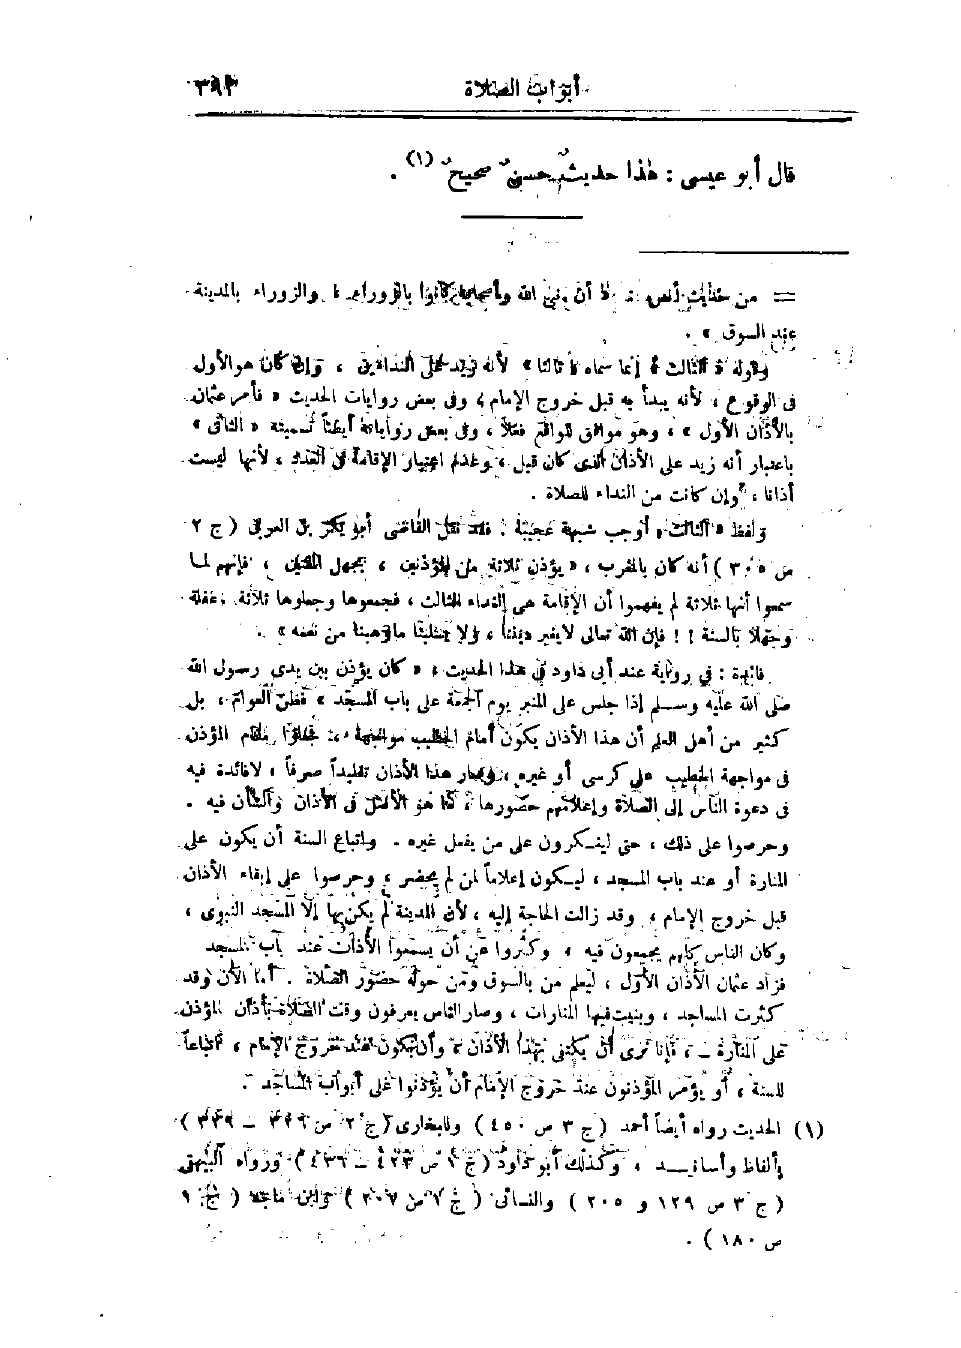 أبواب الصلاة ٣٩٣
قال أبو عيسى : هٰذا حديثٌ حسنٌ صحيحٌ (١) .
= من حديث أنس أن نبي الله وأصحابه كانوا بالزوراء ، والزوراء بالمدينة
عند السوق » .
وقوله « الثالث » إنما سماه « ثالثا » لأنه زيد على النداءين ، وإن كان هو الأول
فى الوقوع ، لأنه يبدأ به قبل خروج الإمام ، وفى بعض روايات الحديث « فأمر عثمان
بالأذان الأول » ، وهو موافق للواقع فعلا ، وفى بعض رواياته أيضاً تسميته « الثانى »
باعتبار أنه زيد على الأذان الذى كان قبل ، وعدم اعتبار الإقامة فى العدد ، لأنها ليست
أذانا ، وإن كانت من النداء للصلاة .
ولفظ « الثالث » أوجب شبهة عجيبة : فقد نقل القاضى أبو بكر بن العربى ( ج ٢
ص ٣٠٥ ) أنه كان بالمغرب « يؤذن ثلاثة من المؤذنين ، بجهل المفتين ، فإنهم لما
سمعوا أنها ثلاثة لم يفهموا أن الإقامة هى النداء الثالث ، فجمعوها وجعلوها ثلاثة ، غفلة
وجهلا بالسنة ! ! فإن الله تعالى لا يغير ديننا ، ولا يسلبنا ما وهبنا من نعمه » .
فائدة : فى رواية عند أبى داود فى هذا الحديث « كان يؤذن بين يدى رسول الله
صلى الله عليه وسلم إذا جلس على المنبر يوم الجمعة على باب المسجد » فظن العوام ، بل
كثير من أهل العلم أن هذا الأذان يكون أمام الخطيب مواجهة ، فجعلوا مقام المؤذن
فى مواجهة الخطيب على كرسى أو غيره ، وصار هذا الأذان تقليداً صرفاً ، لا فائدة فيه
فى دعوة الناس إلى الصلاة وإعلامهم حضورها ، كما هو الأصل فى الأذان والشأن فيه .
وحرصوا على ذلك ، حتى لينكرون على من يفعل غيره . واتباع السنة أن يكون على
المنارة أو عند باب المسجد ، ليكون إعلاماً لمن لم يحضر ، وحرصوا على إبقاء الأذان
قبل خروج الإمام ، وقد زالت الحاجة إليه ، لأن المدينة لم يكن بها إلا المسجد النبوى ،
وكان الناس كلهم يجمعون فيه ، وكثروا عن أن يسمعوا الأذان عند باب المسجد
فزاد عثمان الأذان الأول ، ليعلم من بالسوق ومن حوله حضور الصلاة . أما الآن وقد
كثرت المساجد ، وبنيت فيها المنارات ، وصار الناس يعرفون وقت الصلاة بأذان المؤذن
على المنارة - ، فإنا نرى أن يكتفى بهذا الأذان ، وأن يكون عند خروج الإمام ، اتباعاً
للسنة ، أو يؤمر المؤذنون عند خروج الإمام أن يؤذنوا على أبواب المساجد .
(١) الحديث رواه أيضاً أحمد ( ج ٣ ص ٤٥٠ ) والبخارى ( ج ٢ ص
بألفاظ وأسانيد ، وكذلك أبو داود ( ج ١ ص ورواه البيهقى
( ج ٣ ص ١٢٩ و ٢٠٥ ) والنسائى ( ج ١ ص ٢٠٧ ) وابن ماجه ( ج ١
ص ١٨٠ ) .